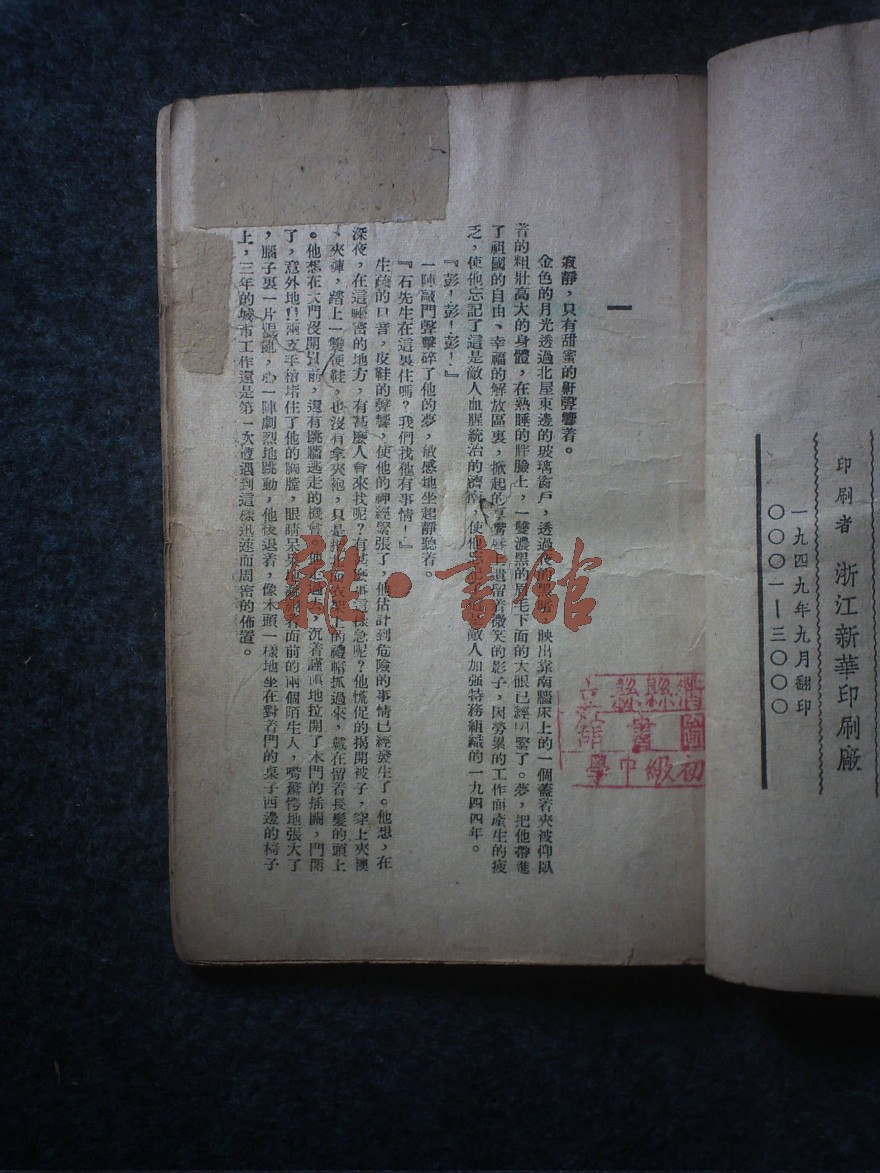 印刷者 浙江新華印刷廠
一九四九年九月翻印
〇〇〇一—三〇〇〇
一
寂靜,只有甜蜜的鼾聲響着。
金色的月光透過北屋東邊的玻璃窗戶,透過夜的黑暗,映出靠南牆床上的一個蓋着夾被仰臥
着的粗壯高大的身體,在熟睡的胖臉上,一雙濃黑的眉毛下面的大眼已經閉緊了。夢,把他帶進
了祖國的自由、幸福的解放區裏,掀起的嘴唇上遺留着微笑的影子,因勞累的工作而產生的疲
乏,使他忘記了這是敵人血腥統治的濟南,使他忘記敵人加强特務組織的一九四四年。
『彭!彭!彭!』
一陣敲門聲擊碎了他的夢,敏感地坐起靜聽着。
『石先生在這裏住嗎?我們找他有事情!』
生疏的口音,皮鞋的聲響,使他的神經緊張了,他估計到危險的事情已經發生了。他想,在
深夜,在這祕密的地方,有甚麼人會來找呢?有甚麼事這樣急呢?他慌促的揭開被子,穿上夾襖
、夾褲,踏上一雙便鞋,也沒有拿夾袍,只是把衣架上的禮帽抓過來,戴在留着長髮的頭上
。他想在大門沒開以前,還有跳牆逃走的機會。他走過去,沉着謹愼地拉開了木門的插關,門開
了,意外地!!兩支手槍堵住了他的胸膛,眼睛呆呆的面前的兩個陌生人,嘴驚愕地張大了
,腦子裏一片混亂,心一陣劇烈地跳動,他後退着,像木頭一樣地坐在對着門的桌子西邊的椅子
上,三年的城市工作還是第一次遭遇到這樣迅速而周密的佈置。
初級中學
圖書
龍·書館